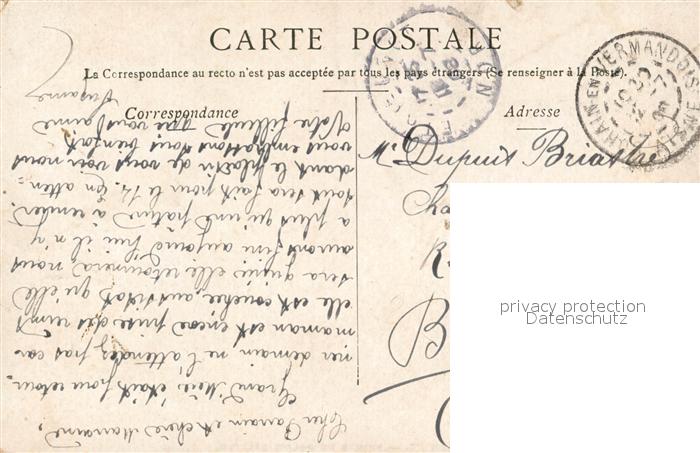 CARTE POSTALE
La Correspondance au recto n'est pas acceptée par tous les pays étrangers (Se renseigner à la Poste).
Correspondance
Adresse
Cher Parrain et chère Marraine,
Grand Mère étais pour retour-
ner demain ne l'attendez pas car
maman est encor prise des reins
elle est couchée, aussitôt qu'elle
sera guérie elle retournera, nous
aurons fini aujourd'hui il n'y
a plus qu'une pature à rentrer
tout sera fait pour le 14. En atten-
dant le plaisir de vous voir nous
vous embrassons tous bien fort
Votre filleule que vous aime
Suzanne
Mr Dupuit Briastre
R.
B
privacy protection
Datenschutz